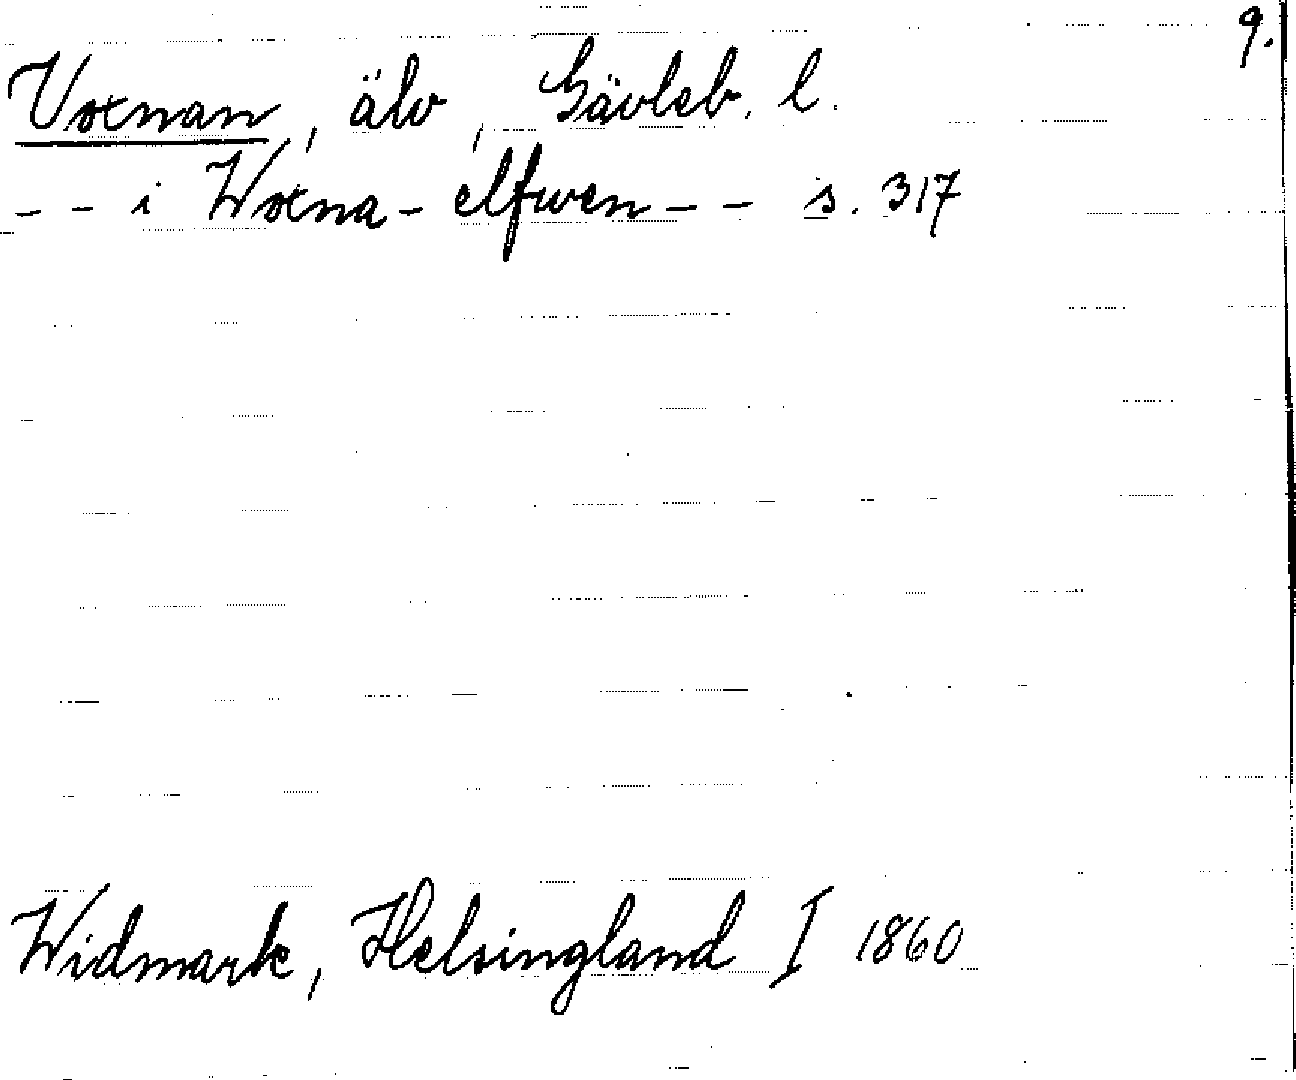 9.
Voxnan, älv, Gävleb. l.
-- i Woxna-elfwen -- s. 317
Widmark, Helsingland I 1860